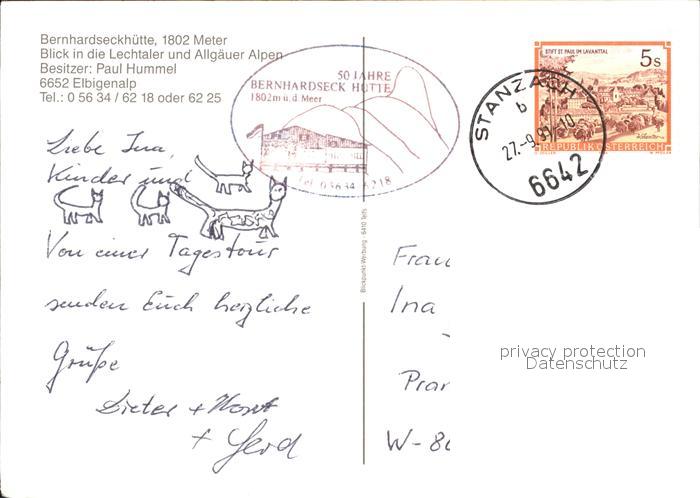 Bernhardseckhütte, 1802 Meter
Blick in die Lechtaler und Allgäuer Alpen
Besitzer: Paul Hummel
6652 Elbigenalp
Tel.: 0 56 34 / 62 18 oder 62 25
50 JAHRE
BERNHARDSECK HÜTTE
1802m ü.d. Meer
Tel. 05634 6218
STIFT ST. PAUL IM LAVANTTAL
5s
REPUBLIK ÖSTERREICH
STANZACH
b
27.-9.9
-10
6642
Liebe Ina,
Kinder und
Von einer Tagestour
senden Euch herzliche
Grüße
Dieter + Horst
+ Gerd
Blickpunkt-Werbung 6410 Telfs
Frau
Ina
W-8
privacy protection
Datenschutz